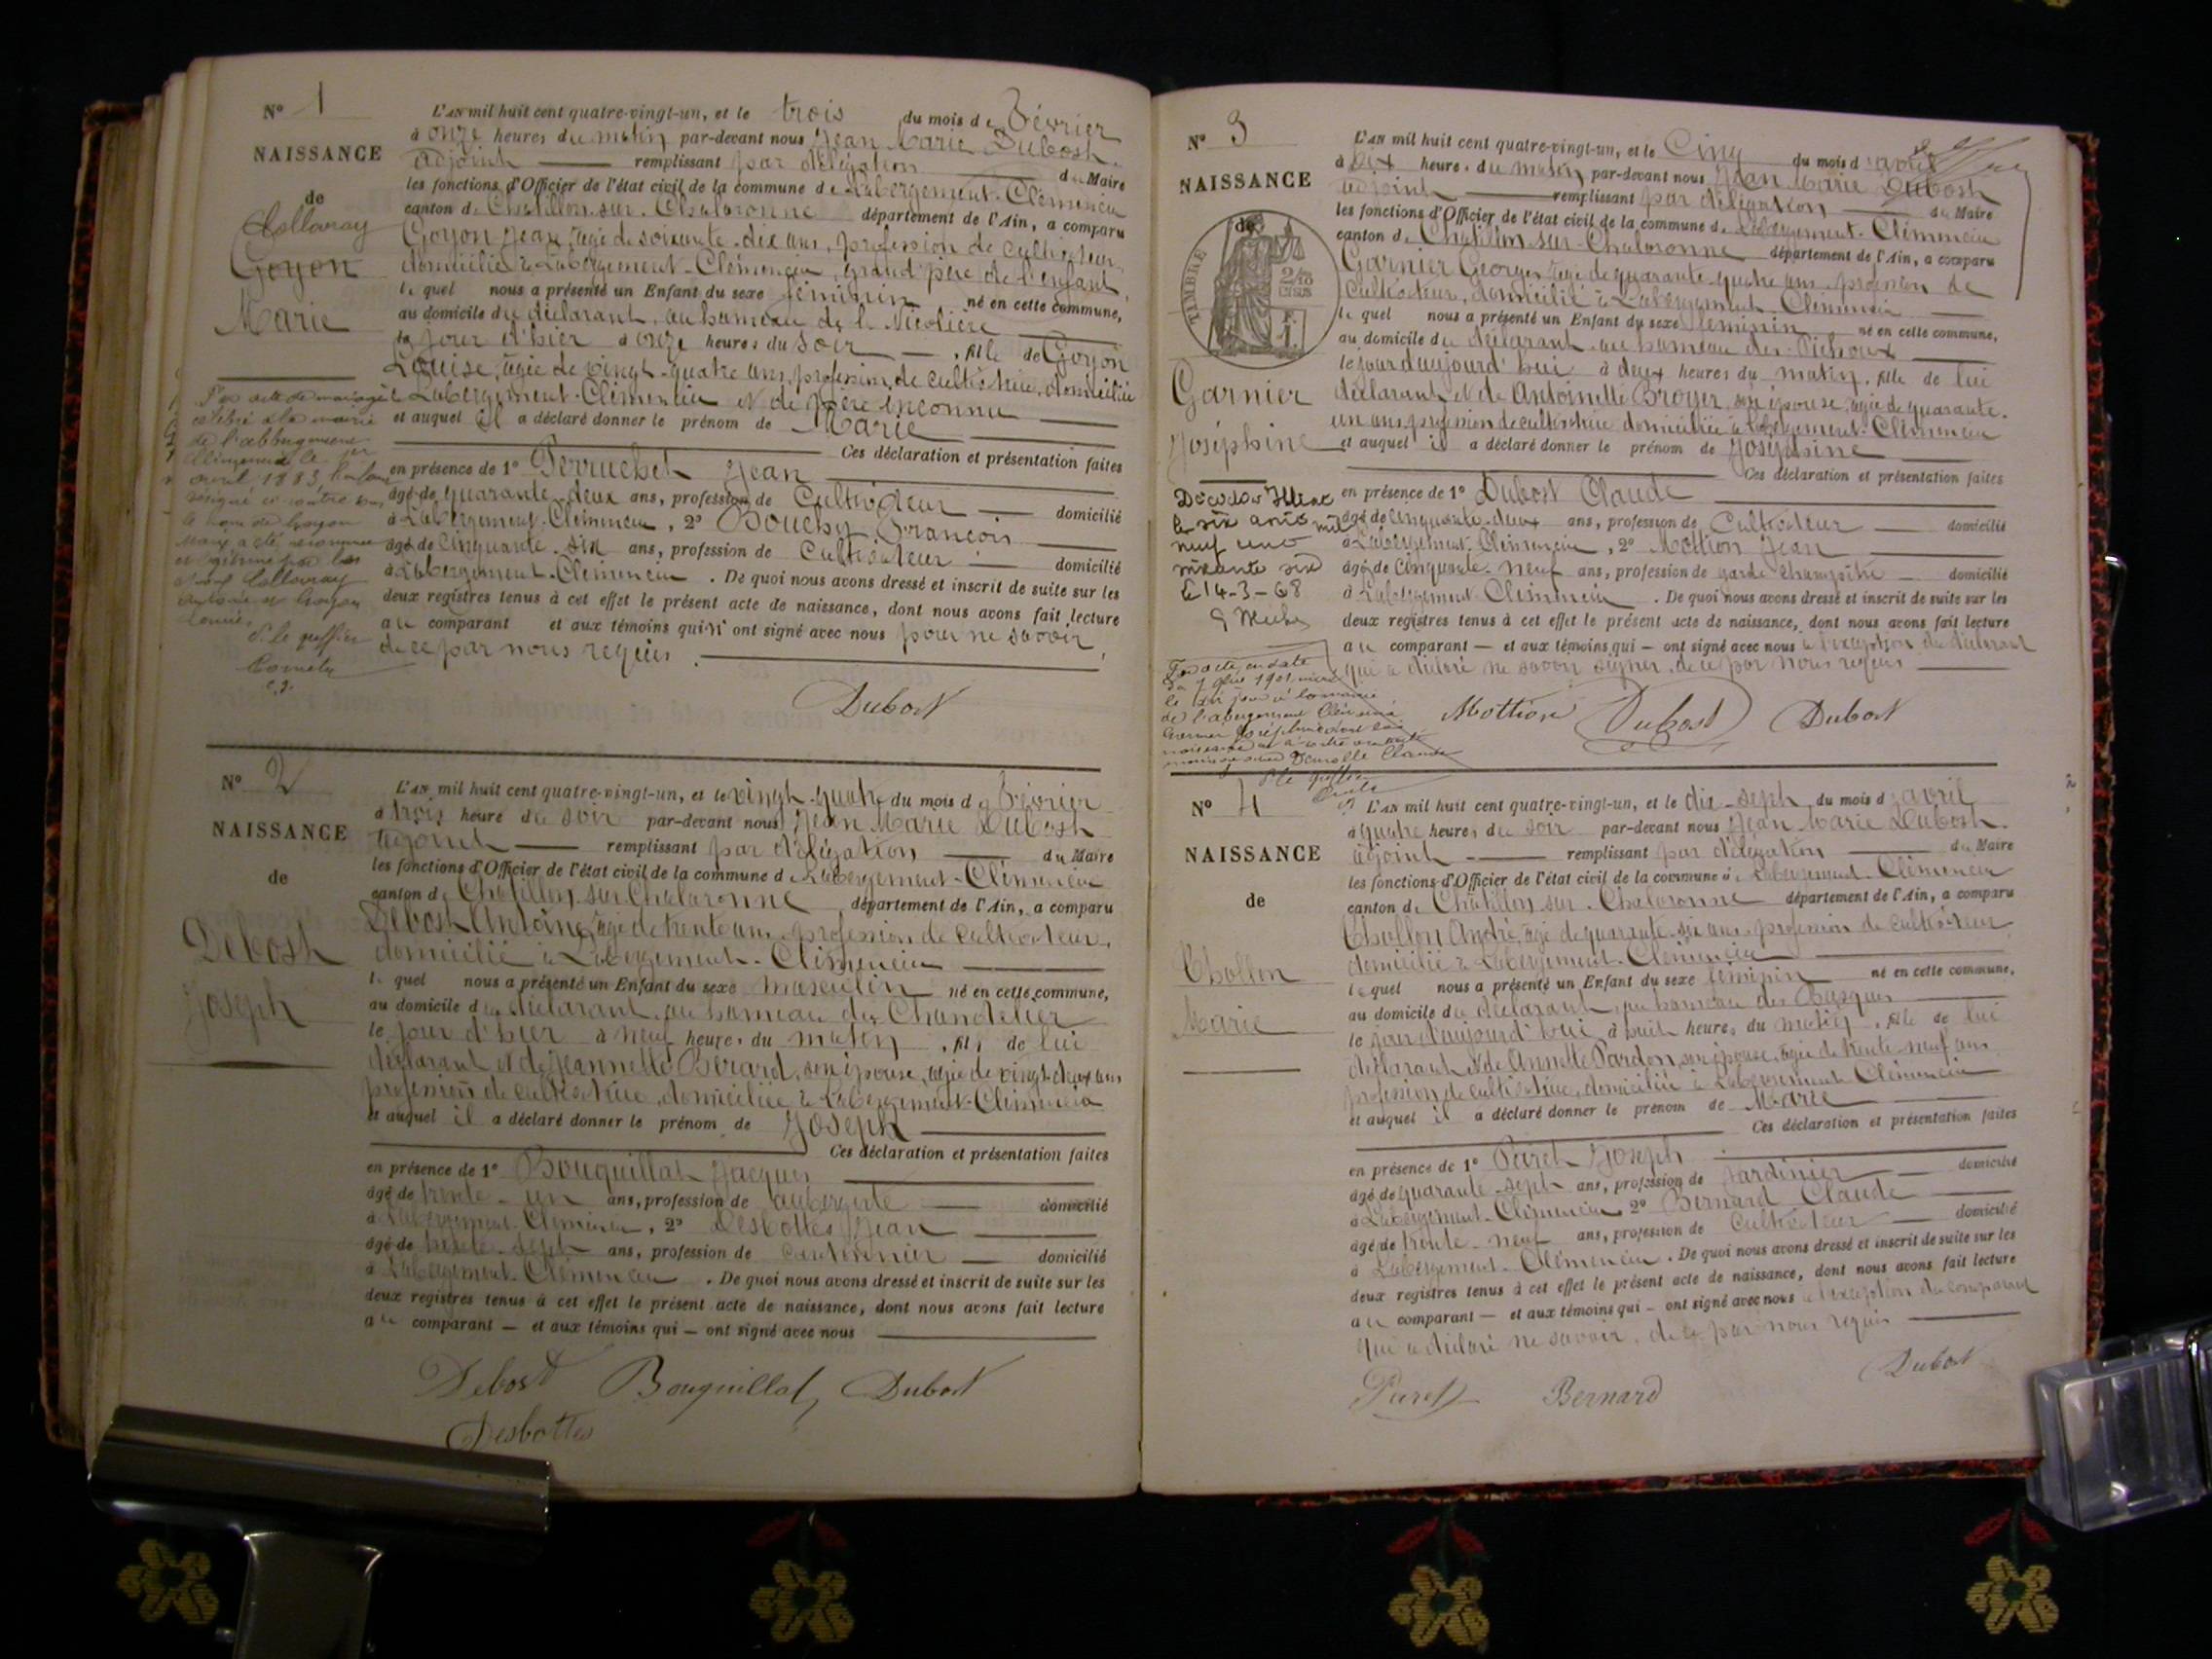 N° 1
NAISSANCE
de
Collavray
Goyon
Marie
L'AN mil huit cent quatre-vingt-un, et le trois du mois de Février
à onze heures du matin par-devant nous Jean Marie Dubost
adjoint remplissant par délégation du Maire
les fonctions d'Officier de l'état civil de la commune de Labergement-Clémencia
canton de Chatillon-sur-Chalaronne département de l'Ain, a comparu
Goyon Jean, âgé de soixante-dix ans, profession de cultivateur,
domicilié à Labergement-Clémencia, grand père de l'enfant,
lequel nous a présenté un Enfant du sexe féminin, né en cette commune,
au domicile du déclarant, au hameau de la Nicolière
le jour d'hier à onze heures du soir, fille de Goyon
Louise, âgée de vingt-quatre ans, profession de cultivatrice, domiciliée
à Labergement-Clémencia et de père inconnu
et auquel il a déclaré donner le prénom de Marie
Ces déclaration et présentation faites
en présence de 1° Perruchet Jean
âgé de quarante-deux ans, profession de Cultivateur domicilié
à Labergement-Clémencia, 2° Bouchy François
âgé de cinquante-six ans, profession de cultivateur domicilié
à Labergement-Clémencia. De quoi nous avons dressé et inscrit de suite sur les
deux registres tenus à cet effet le présent acte de naissance, dont nous avons fait lecture
au comparant et aux témoins qui n'ont signé avec nous pour ne savoir,
de ce par nous requis.
Par acte de mariage
célébré à la mairie
de l'abbergement
Clémencia le 1er
avril 1883,
le nom de Goyon
Marie a été reconnue
et légitimée par les
Collavray
Antoine et Goyon
Louise.
P. le greffier
Dubost
N° 2
NAISSANCE
de
Debost
Joseph
L'AN mil huit cent quatre-vingt-un, et le vingt-quatre du mois de Février
à trois heures du soir par-devant nous Jean Marie Dubost
adjoint remplissant par délégation du Maire
les fonctions d'Officier de l'état civil de la commune de Labergement-Clémencia
canton de Chatillon-sur-Chalaronne département de l'Ain, a comparu
Debost Antoine, âgé de trente ans, profession de cultivateur,
domicilié à Labergement-Clémencia
lequel nous a présenté un Enfant du sexe masculin né en cette commune,
au domicile du déclarant, au hameau du Chandelier
le jour d'hier à neuf heures du matin, fils de lui
déclarant et de Jeannette Bérard, son épouse, âgée de vingt-deux ans
profession de cultivatrice, domiciliée à Labergement-Clémencia
et auquel il a déclaré donner le prénom de Joseph
Ces déclaration et présentation faites
en présence de 1° Bouquillat Jacques
âgé de trente-un ans, profession de aubergiste domicilié
à Labergement-Clémencia, 2° Desbottes Jean
âgé de trente-sept ans, profession de cantonnier domicilié
à Labergement-Clémencia. De quoi nous avons dressé et inscrit de suite sur les
deux registres tenus à cet effet le présent acte de naissance, dont nous avons fait lecture
au comparant — et aux témoins qui — ont signé avec nous
Debost Bouquillat Dubost
Desbottes
N° 3
NAISSANCE
de
TIMBRE
Garnier
Joséphine
L'AN mil huit cent quatre-vingt-un, et le Cinq du mois d'avril
à dix heures du matin par-devant nous Jean Marie Dubost
adjoint remplissant par délégation du Maire
les fonctions d'Officier de l'état civil de la commune de Labergement-Clémencia
canton de Chatillon-sur-Chalaronne département de l'Ain, a comparu
Garnier Georges, âgé de quarante-quatre ans, profession de
cultivateur, domicilié à Labergement-Clémencia
lequel nous a présenté un Enfant du sexe féminin né en cette commune,
au domicile du déclarant au hameau des Pichoux
le jour d'aujourd'hui à deux heures du matin, fille de lui
déclarant et de Antoinette Broyer, son épouse, âgée de quarante-
un ans, profession de cultivatrice domiciliée à Labergement-Clémencia
et auquel il a déclaré donner le prénom de Joséphine
Ces déclaration et présentation faites
en présence de 1° Dubost Claude
âgé de cinquante-deux ans, profession de Cultivateur domicilié
à Labergement-Clémencia, 2° Mottion Jean
âgé de cinquante-neuf ans, profession de garde champêtre domicilié
à Labergement-Clémencia. De quoi nous avons dressé et inscrit de suite sur les
deux registres tenus à cet effet le présent acte de naissance, dont nous avons fait lecture
au comparant — et aux témoins qui — ont signé avec nous à l'exception du déclarant
qui a déclaré ne savoir signer, de ce par nous requis
neuf cent
soixante six
Le 14-3-68
de l'abergement Clémencia
Mottion Dubost Dubost
N° 4
NAISSANCE
de
Chollon
Marie
L'AN mil huit cent quatre-vingt-un, et le dix-sept du mois d'avril
à quatre heures du soir par-devant nous Jean Marie Dubost
adjoint remplissant par délégation du Maire
les fonctions d'Officier de l'état civil de la commune de Labergement-Clémencia
canton de Chatillon-sur-Chalaronne département de l'Ain, a comparu
Chollon André, âgé de quarante-six ans, profession de cultivateur
domicilié à Labergement-Clémencia
lequel nous a présenté un Enfant du sexe féminin né en cette commune,
au domicile du déclarant, au hameau des
le jour d'aujourd'hui à huit heures du matin, fille de lui
déclarant et de Annette Pardon, son épouse, âgée de trente-neuf ans
profession de cultivatrice, domiciliée à Labergement-Clémencia
et auquel il a déclaré donner le prénom de Marie
Ces déclaration et présentation faites
en présence de 1° Paret Joseph
âgé de quarante-sept ans, profession de Jardinier domicilié
à Labergement-Clémencia, 2° Bernard Claude
âgé de trente-neuf ans, profession de Cultivateur domicilié
à Labergement-Clémencia. De quoi nous avons dressé et inscrit de suite sur les
deux registres tenus à cet effet le présent acte de naissance, dont nous avons fait lecture
au comparant — et aux témoins qui — ont signé avec nous à l'exception du comparant
qui a déclaré ne savoir, de ce par nous requis
Dubost
Paret Bernard